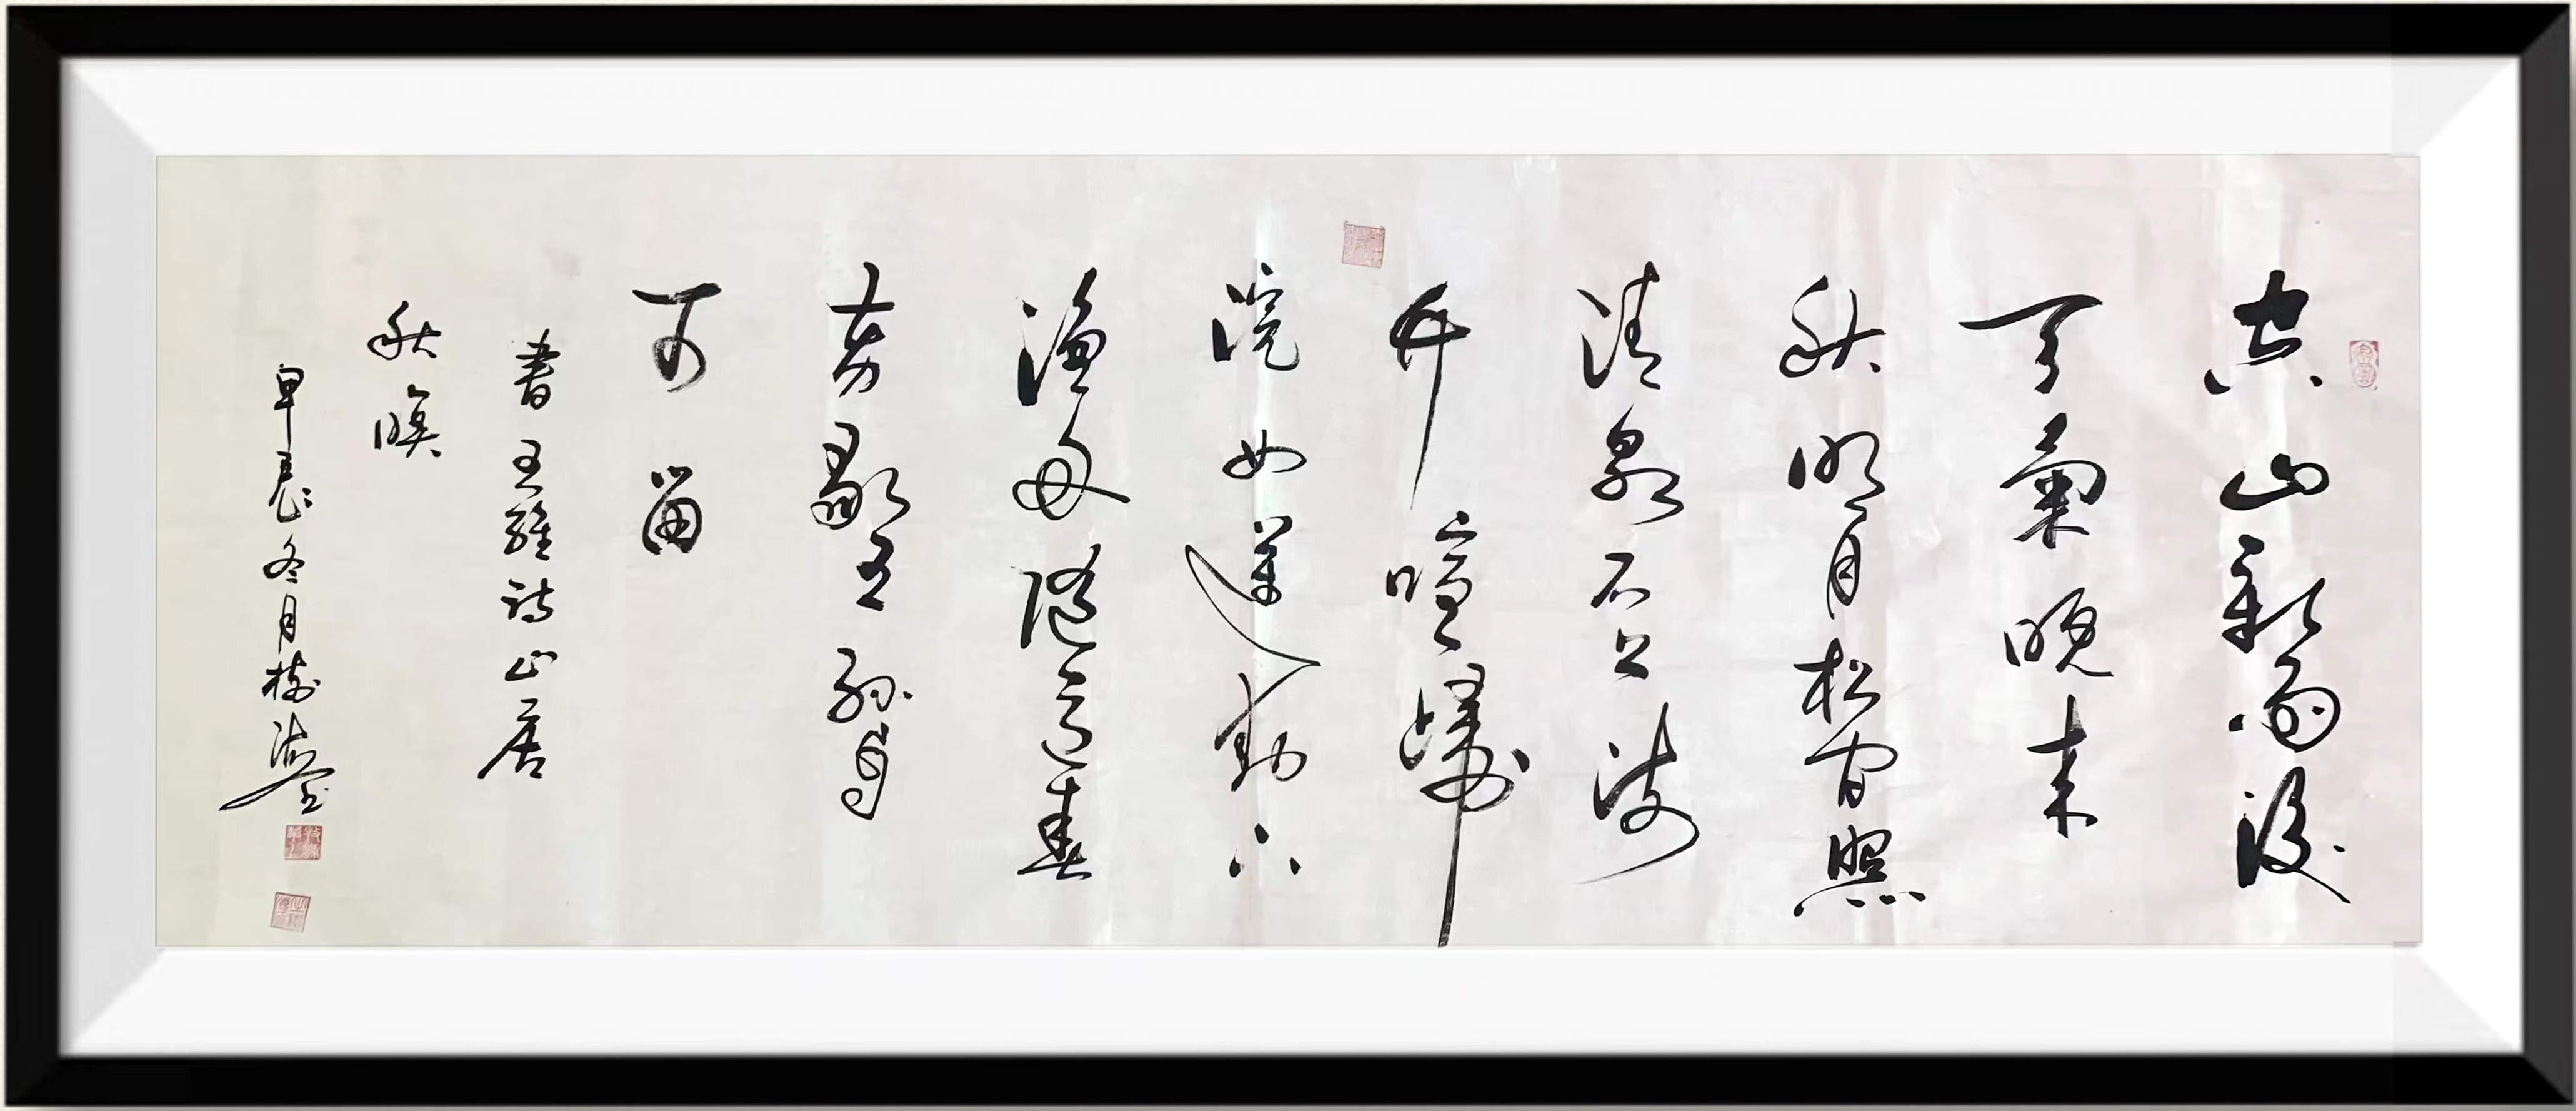 空山新雨後
天氣晚来
秋明月松間照
清泉石上流
竹喧歸
浣女蓮動下
漁舟随意春
芳歇王孫自
可留
書王維詩山居
秋暝
甲辰冬月樹